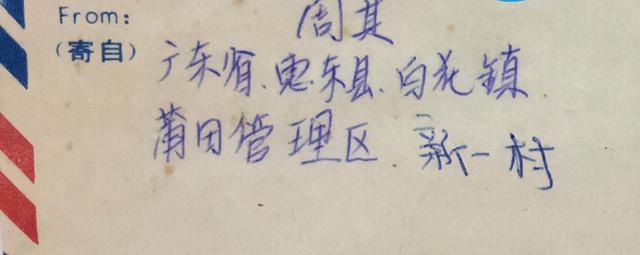 From:
周其
(寄自)
广东省.惠东县.白花镇
莆田管理区.新一村